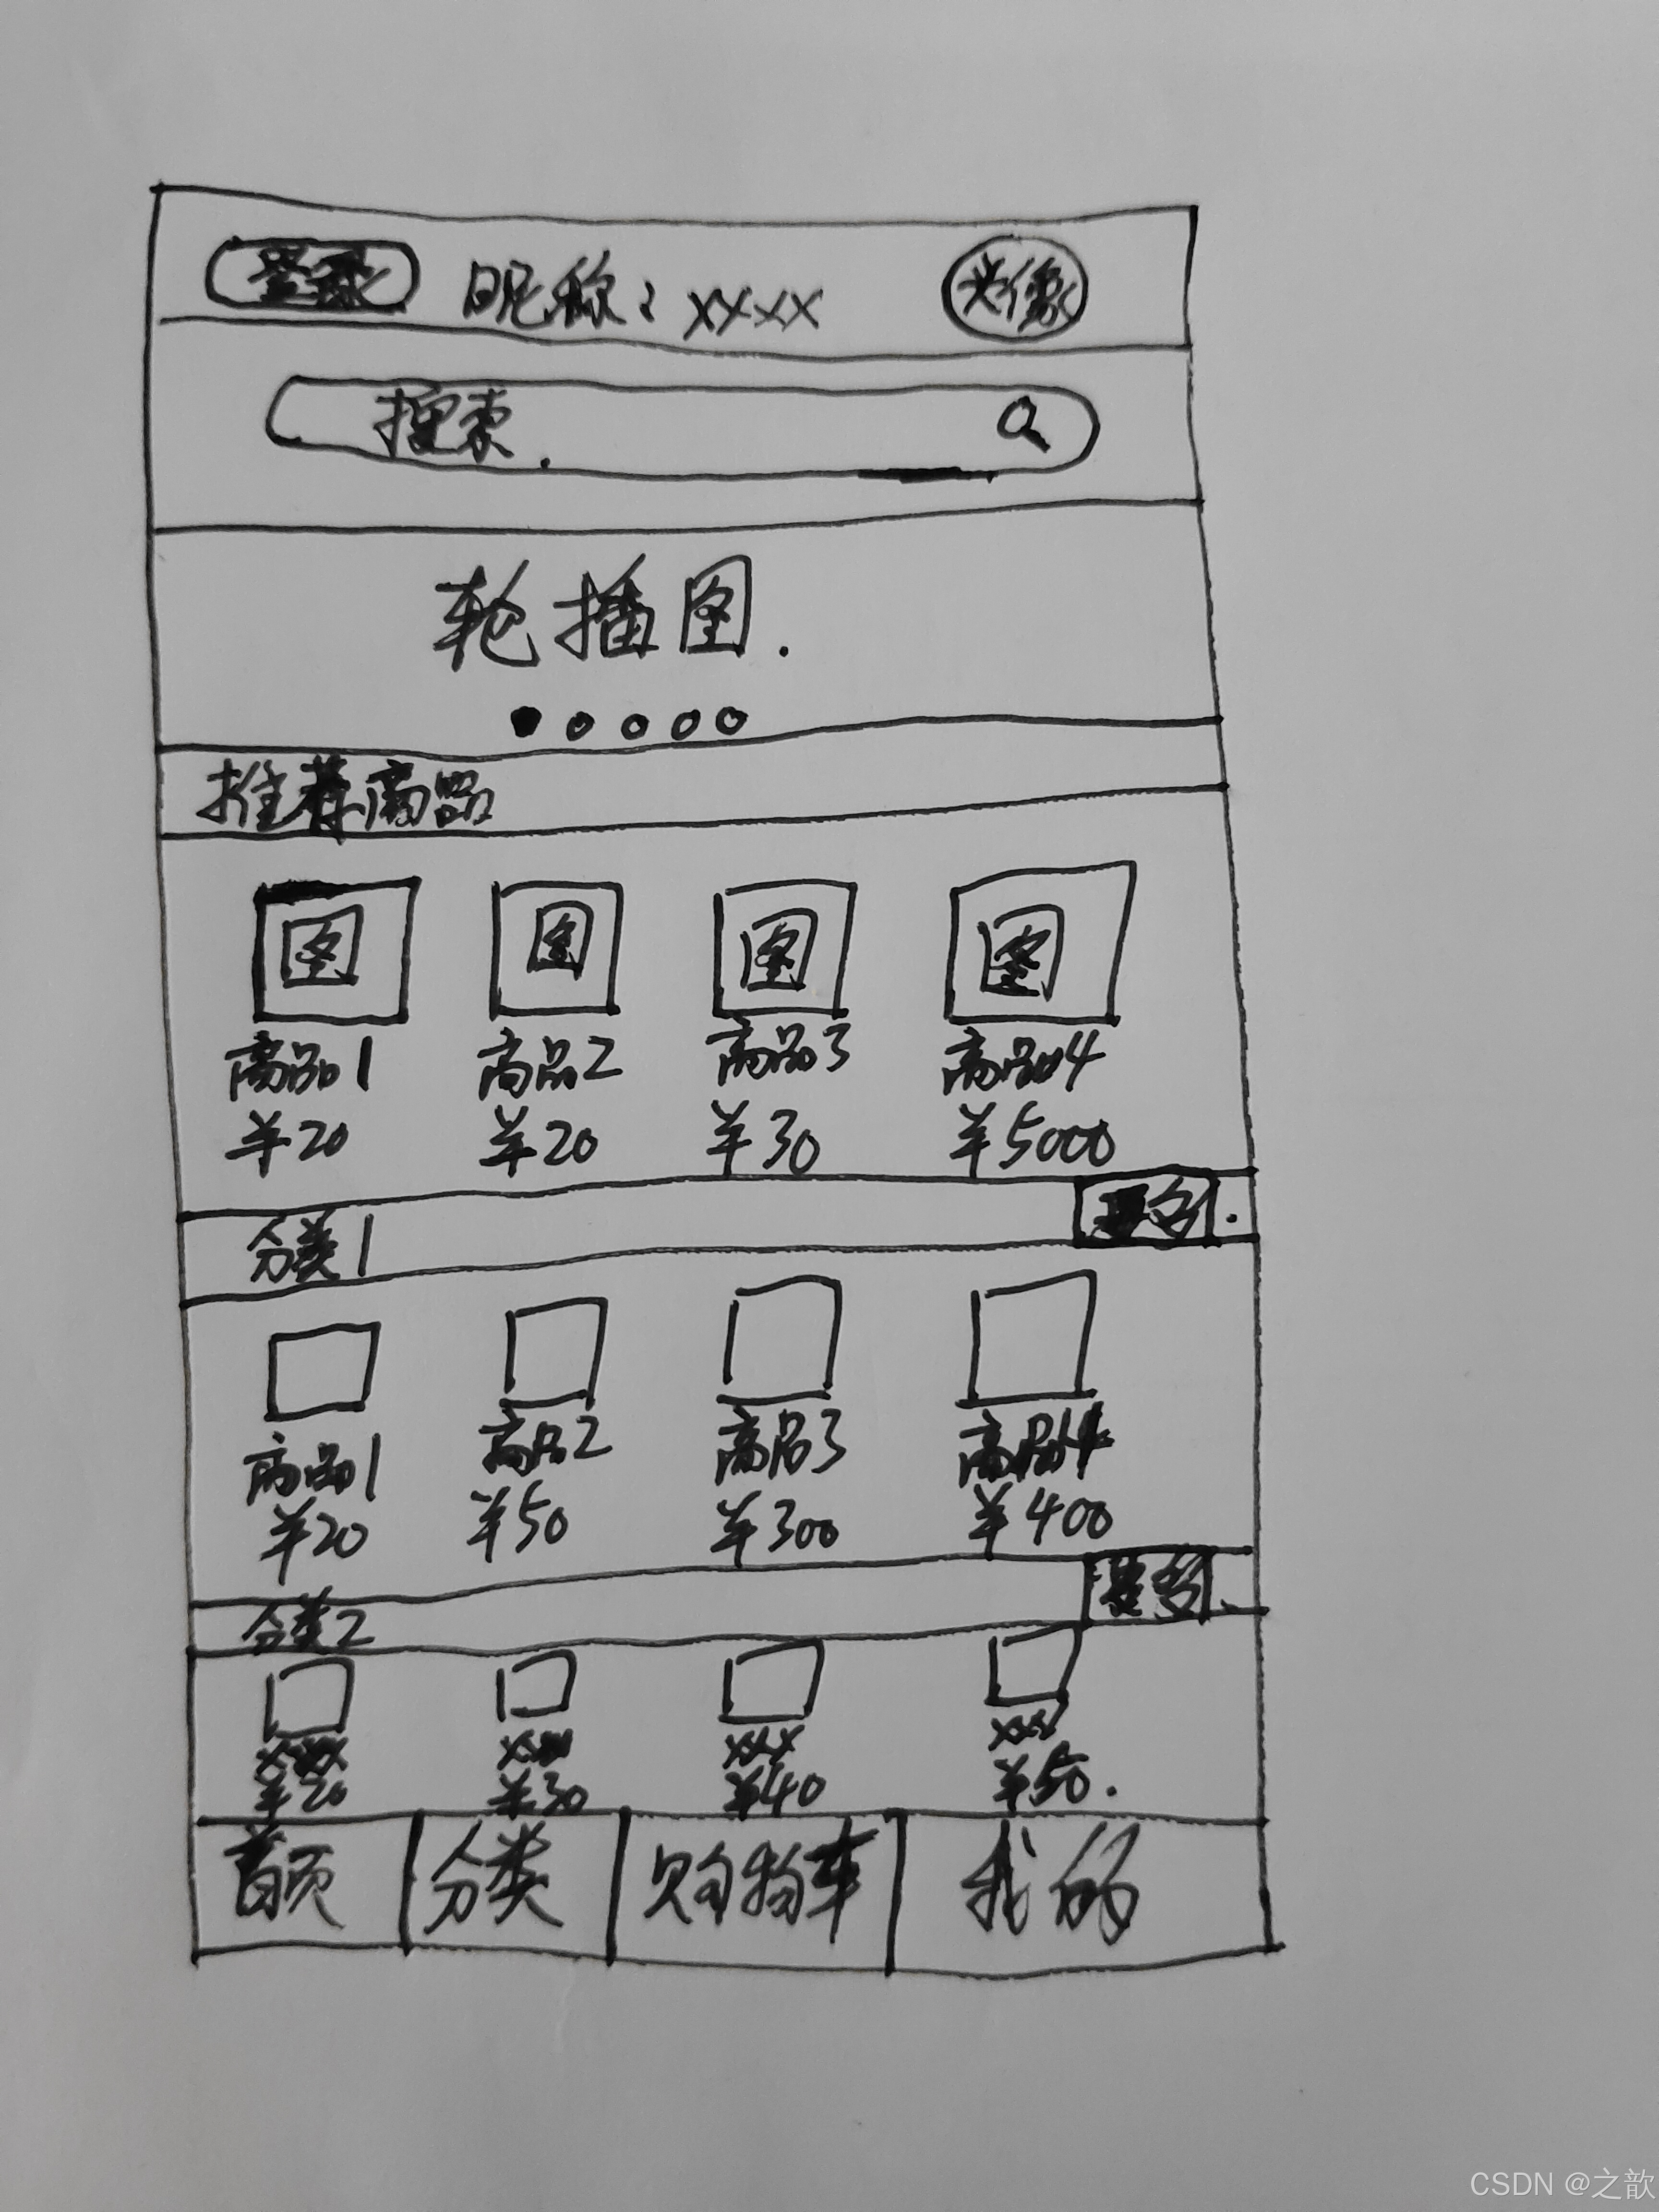 登录 昵称：xxxx 头像
搜索
轮播图
推荐商品
图 图 图 图
商品1 商品2 商品3 商品4
¥20 ¥20 ¥30 ¥5000
分类1 更多
商品1 商品2 商品3 商品4
¥20 ¥50 ¥300 ¥400
分类2 更多
xxx xxx xxx xxx
¥20 ¥30 ¥40 ¥50
首页 分类 购物车 我的
CSDN @之歆